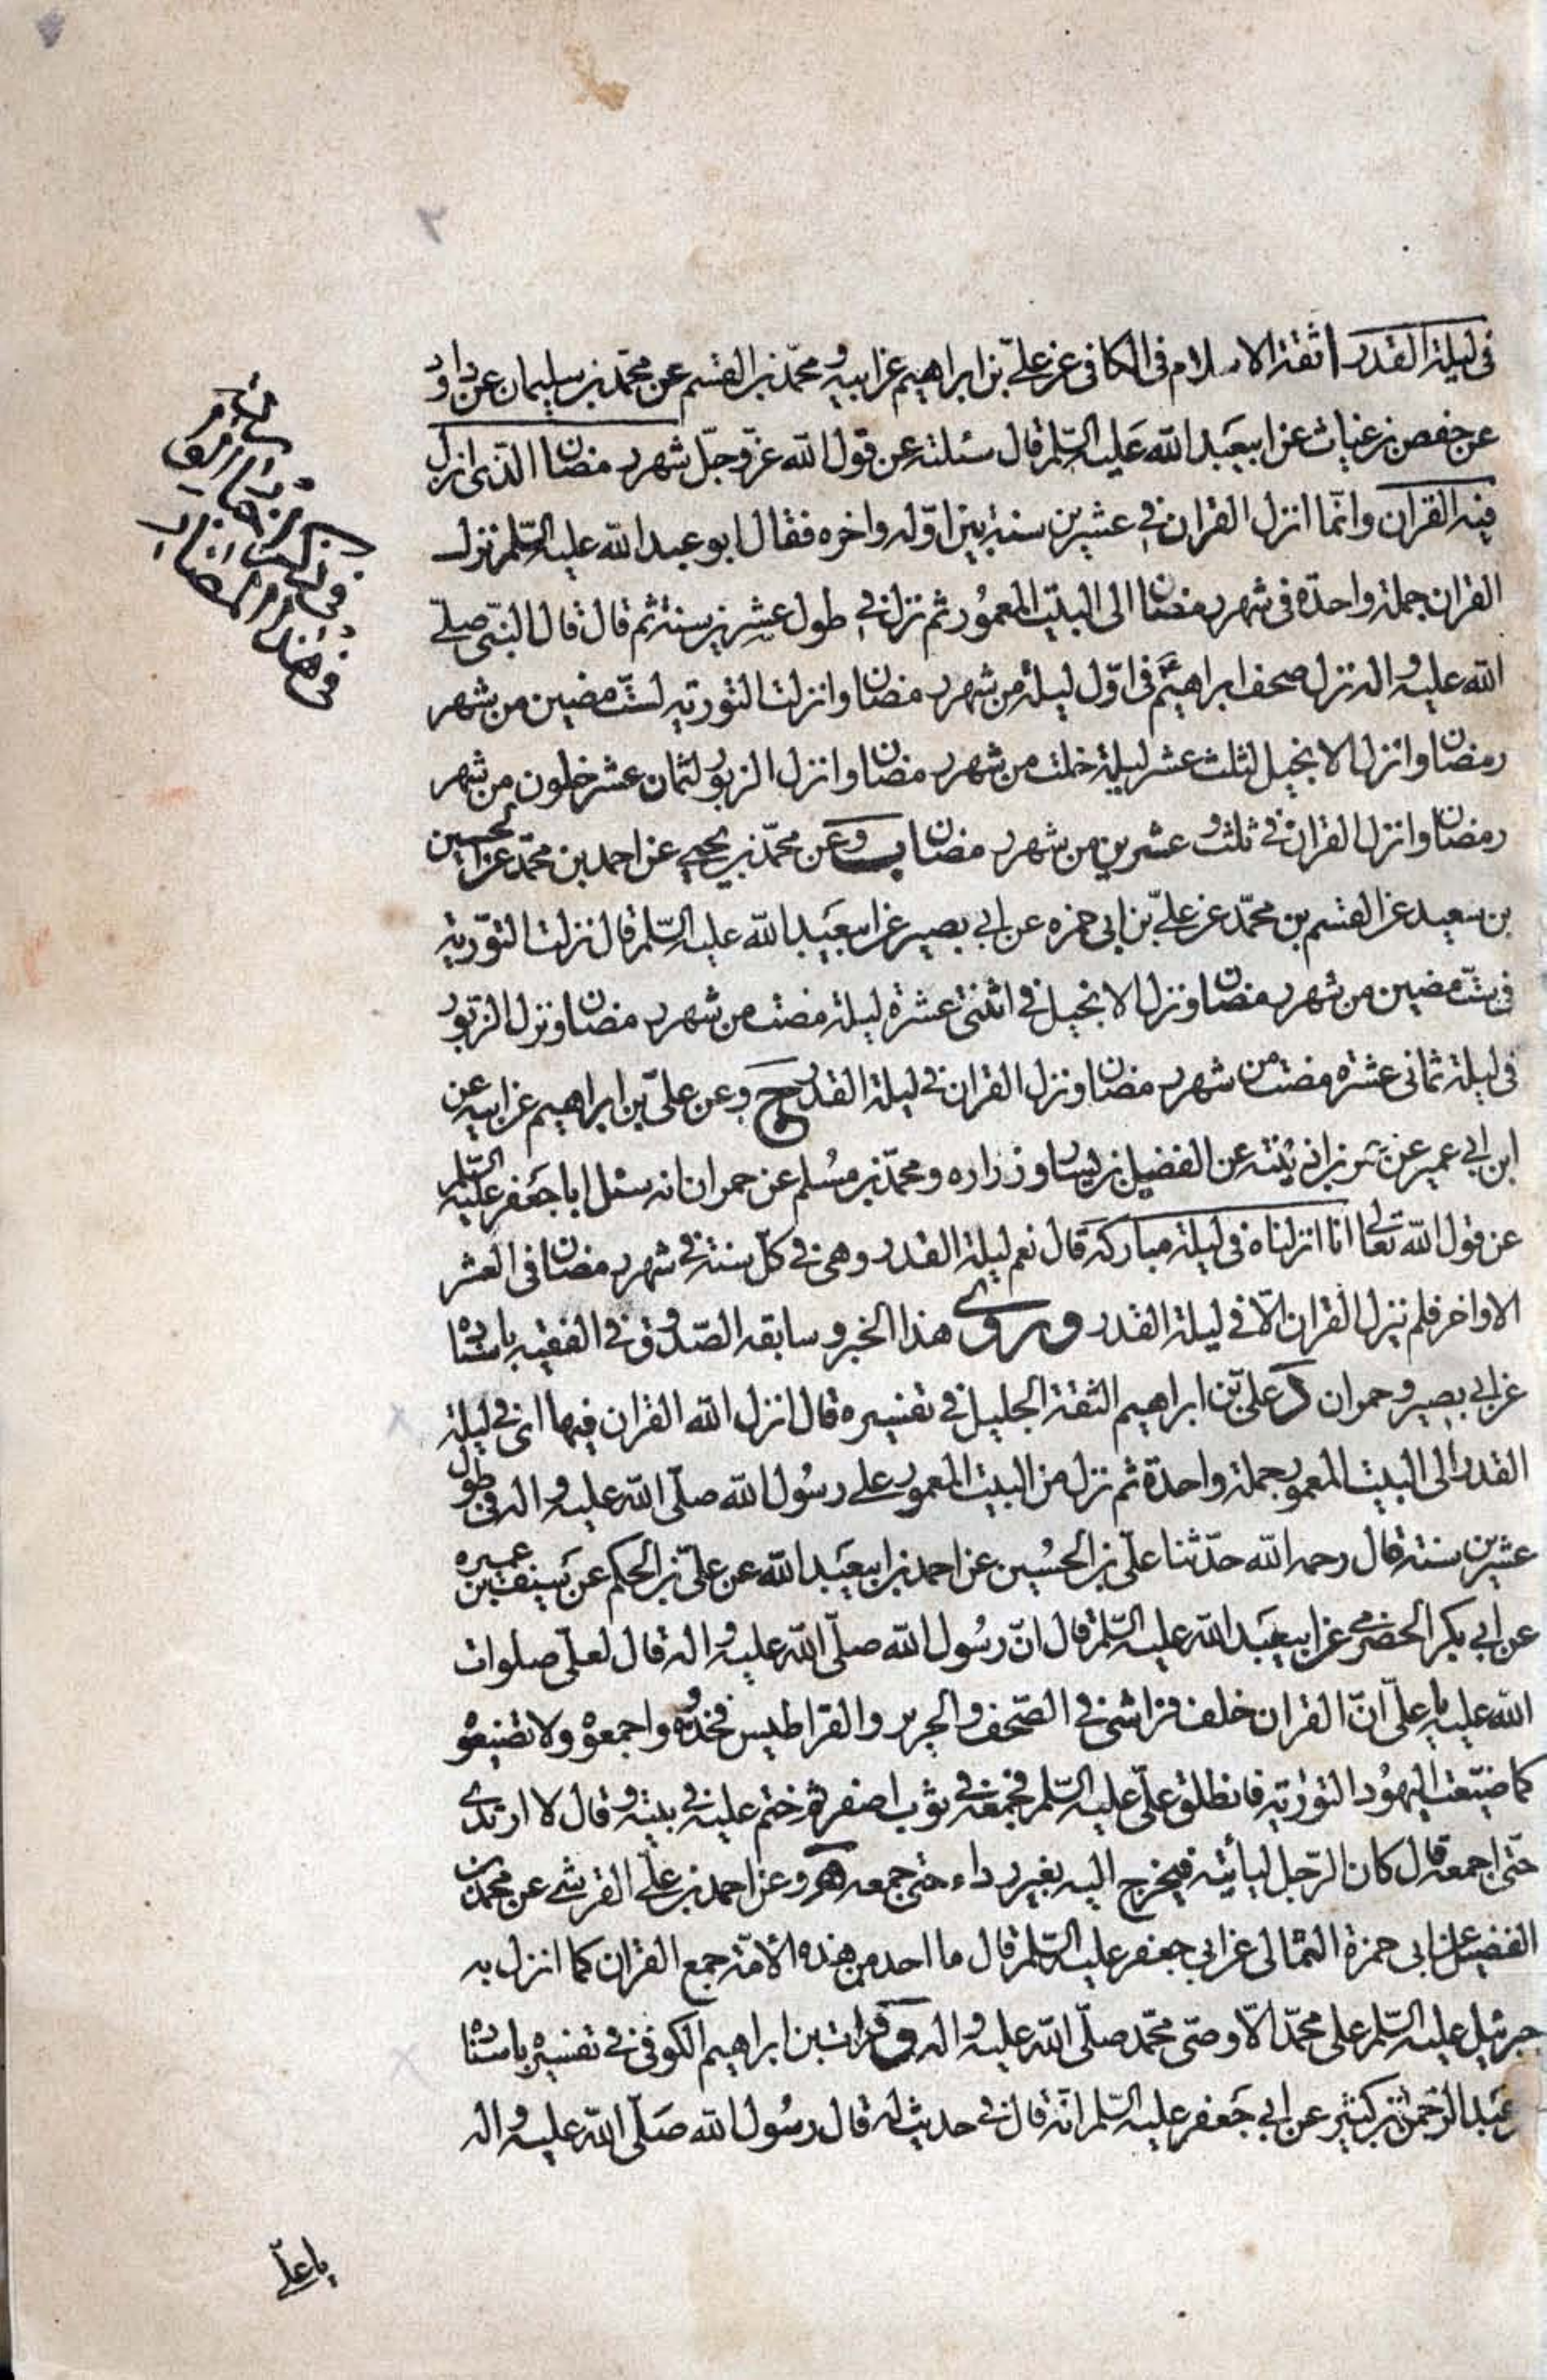 فى ليلة القدر ا ثقة الاسلام فى الكافى عن على بن ابراهيم عن ابيه و محمّد بن القسم عن محمّد بن سليمان عن داود
عن حفص بن غياث عن ابيعبد الله عليه السّلم قال سئلته عن قول الله عزّ وجلّ شهر رمضان الذى انزل
فيه القران وانّما انزل القران فى عشرين سنة بين اوّله واخره فقال ابو عبد الله عليه السّلم نزل
القران جملة واحدة فى شهر رمضان الى البيت المعمور ثم نزل فى طول عشرين سنة ثم قال قال النّبى صلّى
الله عليه واله نزل صحف ابراهيم فى اوّل ليلة من شهر رمضان وانزلت التورية لستّ مضين من شهر
رمضان وانزل الانجيل لثلث عشر ليلة خلت من شهر رمضان وانزل الزبور لثمان عشر خلون من شهر
رمضان وانزل القران فى ثلث وعشرين من شهر رمضان ب وعن محمّد بن يحيى عن احمد بن محمّد عن الحسين
بن سعيد عن القسم بن محمّد عن علىّ بن ابى حمزه عن ابى بصير عن ابيعبد الله عليه السّلم قال نزلت التّورية
فى ستّ مضين من شهر رمضان ونزل الانجيل فى اثنتى عشرة ليلة مضت من شهر رمضان ونزل الزّبور
فى ليلة ثمانى عشرة مضت من شهر رمضان ونزل القران فى ليلة القدر ج وعن علىّ بن ابراهيم عن ابيه عن
ابن ابى عمير عن عمر بن اذينه عن الفضيل بن يسار وزراره ومحمّد بن مسلم عن حمران انه سئل ابا جعفر عليه السّلم
عن قول الله تعالى انا انزلناه فى ليلة مباركة قال نعم ليلة القدر وهى فى كلّ سنة فى شهر رمضان فى العشر
الاواخر فلم ينزل القران الّا فى ليلة القدر وروى هذا الخبر وسابقه الصّدوق فى الفقيه باسناده
عن ابى بصير وحمران د علىّ بن ابراهيم الثقة الجليل فى تفسيره قال انزل الله القران فيها اى فى ليلة
القدر الى البيت المعمور جملة واحدة ثم نزل من البيت المعمور على رسول الله صلّى الله عليه واله فى طول
عشرين سنة قال رحمه الله حدّثنا علىّ بن الحسين عن احمد بن ابيعبد الله عن علىّ بن الحكم عن سيف بن عميره
عن ابى بكر الحضرمى عن ابيعبد الله عليه السّلم قال انّ رسول الله صلّى الله عليه واله قال لعلى صلوات
الله عليه يا على انّ القران خلف فراشى فى الصّحف والحرير والقراطيس فخذوه واجمعوه ولا تضيّعوه
كما ضيّعت اليهود التورية فانطلق علىّ عليه السّلم فجمعه فى ثوب اصفر ثم ختم عليه فى بيته وقال لا ارتدى
حتى اجمعه قال كان الرّجل ليأتيه فيخرج اليه بغير رداء حتى جمعه ه وعن احمد بن على القرشى عن محمد بن
الفضيل عن ابى حمزة الثمالى عن ابى جعفر عليه السّلم قال ما احد من هذه الامّة جمع القران كما انزل به
جبرئيل عليه السّلم على محمّد الّا وصىّ محمّد صلّى الله عليه واله و فرات بن ابراهيم الكوفى فى تفسيره باسناده
عبد الرّحمن بن كثير عن ابى جعفر عليه السّلم انّه قال فى حديث له قال رسول الله صلّى الله عليه واله
يا على